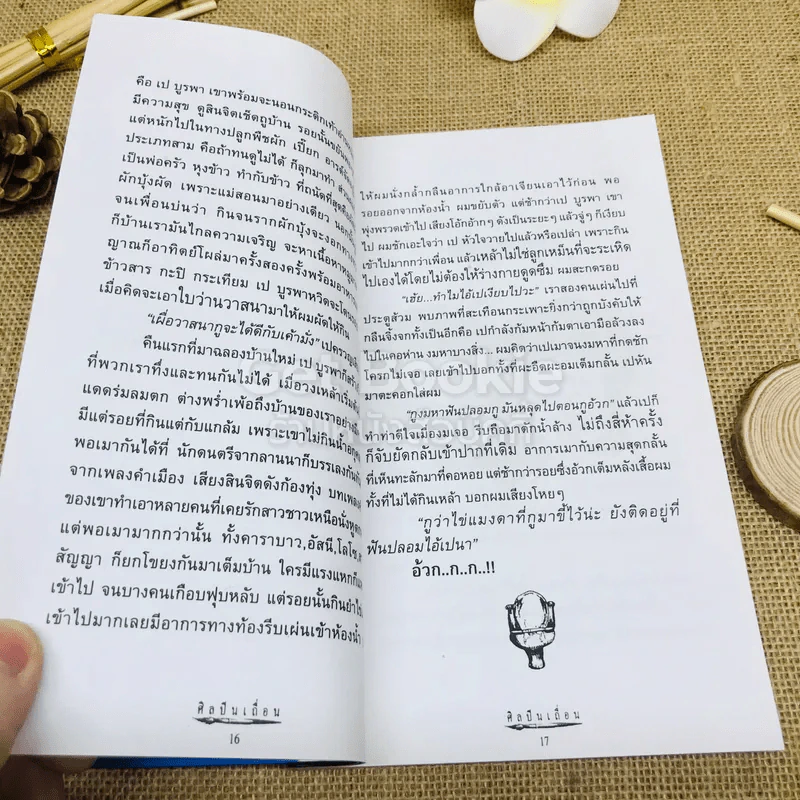 คือ เป บูรพา เขาพร้อมจะนอนกระดิกเท้า
มีความสุข ดูสินจิตเช็ดถูบ้าน รอยนั้นขยัน
แต่หนักไปในทางปลูกพืชผัก เปี๊ยก
ประเภทสาม คือถ้าทนดูไม่ได้ ก็ลุกมาทำ
เป็นพ่อครัว หุงข้าว ทำกับข้าว ที่ถนัดที่สุด
ผักบุ้งผัด เพราะแม่สอนมาอย่างเดียว
จนเพื่อนบ่นว่า กินจนรากผักบุ้งจะงอก
ก็บ้านเรามันไกลความเจริญ จะหาเนื้อหา
ญาณก็อาทิตย์โผล่มาครั้งสองครั้งพร้อม
ข้าวสาร กะปิ กระเทียม เป บูรพาหวิด
เมื่อคิดจะเอาใบว่านวาสนามาให้ผมผัดให้กิน
“เผื่อวาสนากูจะได้ดีกับเค้ามั่ง”
คืนแรกที่มาฉลองบ้านใหม่ เป บูรพา
ที่พวกเราทึ่งและทนกันไม่ได้ เมื่อวงเหล้าเริ่ม
แดดร่มลมตก ต่างพร่ำเพ้อถึงบ้านของเราอย่าง
มีแต่รอยที่กินแต่กับแกล้ม เพราะเขาไม่กินน้ำ
พอเมากันได้ที่ นักดนตรีจากลานนาก็บรรเลงกัน
จากเพลงคำเมือง เสียงสินจิตดังก้องทุ่ง บทเพลง
ของเขาทำเอาหลายคนที่เคยรักสาวชาวเหนือนั่ง
แต่พอเมามากกว่านั้น ทั้งคาราบาว,อัสนี,โลโซ,
สัญญา ก็ยกโขยงกันมาเต็มบ้าน ใครมีแรงแหกก็
เข้าไป จนบางคนเกือบฟุบหลับ แต่รอยนั้นกินยำ
เข้าไปมากเลยมีอาการทางท้องรีบเผ่นเข้าห้องน้ำ
ศิลปินเถื่อน
16
ให้ผมนั่งกล้ำกลืนอาการใกล้อาเจียนเอาไว้ก่อน พอ
รอยออกจากห้องน้ำ ผมขยับตัว แต่ช้ากว่าเป บูรพา เขา
พุ่งพรวดเข้าไป เสียงโอ้กอ้ากๆ ดังเป็นระยะๆ แล้วจู่ๆ ก็เงียบ
ไป ผมชักเอะใจว่า เป หัวใจวายไปแล้วหรือเปล่า เพราะกิน
เข้าไปมากกว่าเพื่อน แล้วเหล้าไม่ใช่ลูกเหม็นที่จะระเหิด
ไปเองได้โดยไม่ต้องให้ร่างกายดูดซึม ผมสะกดรอย
“เฮ้ย...ทำไมไอ้เปเงียบไปวะ” เราสองคนเผ่นไปที่
ประตูส้วม พบภาพที่สะเทือนกระเพาะยิ่งกว่าถูกบังคับให้
กลืนจิ้งจกทั้งเป็นอีกคือ เปกำลังก้มหน้าก้มตาเอามือล้วงลง
ไปในคอห่าน งมหาบางสิ่ง... ผมคิดว่าเปเมาจนงมหาที่กดชัก
โครกไม่เจอ เลยเข้าไปบอกทั้งที่ผะอืดผะอมเต็มกลั้น เปหัน
มาตะคอกใส่ผม
“กูงมหาฟันปลอมกู มันหลุดไปตอนกูอ้วก” แล้วเปก็
ทำท่าดีใจเมื่องมเจอ รีบถือมาตักน้ำล้าง ไม่ถึงสี่ห้าครั้ง
ก็จับยัดกลับเข้าปากที่เดิม อาการเมากับความสุดกลั้น
ที่เห็นทะลักมาที่คอหอย แต่ช้ากว่ารอยซึ่งอ้วกเต็มหลังเสื้อผม
ทั้งที่ไม่ได้กินเหล้า บอกผมเสียงโหยๆ
“กูว่าไข่แมงดาที่กูมาขี้ไว้น่ะ ยังติดอยู่ที่
ฟันปลอมไอ้เปนา”
อ้วก..ก..ก..!!
ศิลปินเถื่อน
17